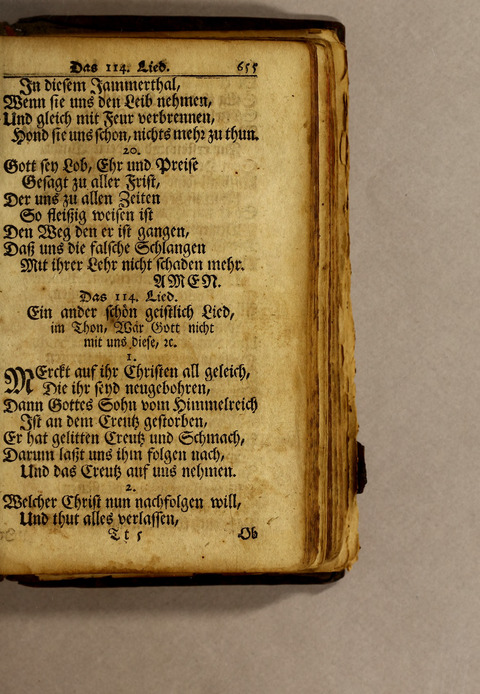 Das 114. Lied. 655
In diesem Jammerthal,
Wenn sie uns den Leib nehmen,
Und gleich mit Feur verbrennen,
Hond sie uns schon, nichts mehr zu thun.
20.
Gott sey Lob, Ehr und Preise
Gesagt zu aller Frist,
Der uns zu allen Zeiten
So fleißig weisen ist
Den Weg den er ist gangen,
Daß uns die falsche Schlangen
Mit ihrer Lehr nicht schaden mehr.
AMEN.
Das 114. Lied.
Ein ander schön geistlich Lied,
im Thon, Wär Gott nicht
mit uns diese, ꝛc.
1.
MErckt auf ihr Christen all geleich,
Die ihr seyd neugebohren,
Dann Gottes Sohn vom Himmelreich
Ist an dem Creutz gestorben,
Er hat gelitten Creutz und Schmach,
Darum laßt uns ihm folgen nach,
Und das Creutz auf uns nehmen.
2.
Welcher Christ nun nachfolgen will,
Und thut alles verlassen,
Tt 5 Ob